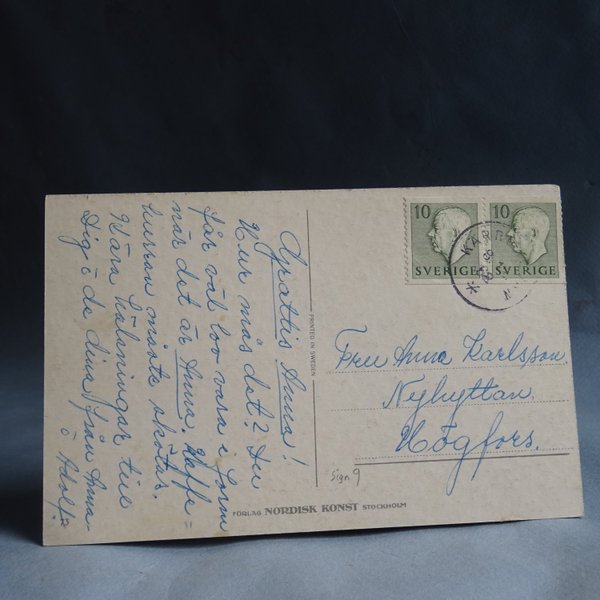 Grattis Anna!
Hur mås det? Du
får väl lov vara i form
när det är Anna, Kaffe=
hurran måste skötas.
Kära hälsningar till
Dig o de dina från Anna-
o Adolf.
PRINTED IN SWEDEN
10
SVERIGE
10
SVERIGE
Fru Anna Karlsson.
Nyhyttan.
Högfors.
Sign 9
FÖRLAG NORDISK KONST STOCKHOLM